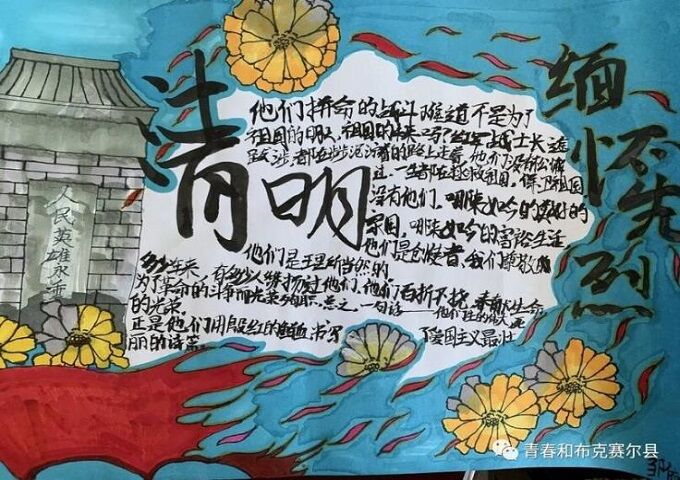 清明
缅怀先烈
人民英雄永垂
他们拼命的战斗难道不是为了
祖国的明天,祖国的未来吗?红军战士长途
跋涉,都在涉泥沼着的路上走着,他们
一生都在拯救祖国,保卫祖国
没有他们,哪来如今的美好的
家园,哪来如今的富裕生活,
他们是创使者,我们尊敬
他们是理所当然的。
多少年来,有多少人缅怀过他们,他们百折不挠,奉献生命
为了革命的斗争而光荣牺牲,总之,一句话——他们生的伟大,死
的光荣。
正是他们用殷红的血书写了爱国主义最壮
丽的诗篇。
青春和布克赛尔县